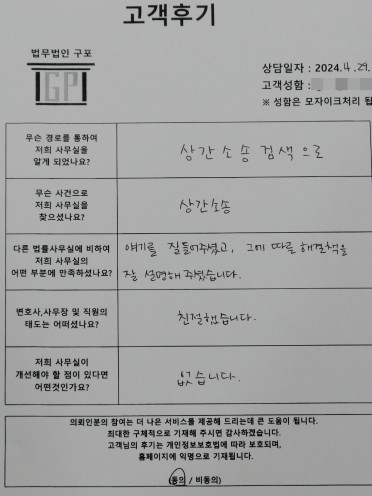 고객후기
법무법인 구포
GP
상담일자 : 2024. 4. 29.
고객성함 :
※ 성함은 모자이크처리 됩
무슨 경로를 통하여
저희 사무실을
알게 되었나요?
상간소송 검색으로
무슨 사건으로
저희 사무실을
찾으셨나요?
상간소송
다른 법률사무실에 비하여
저희 사무실의
어떤 부분에 만족하셨나요?
얘기를 잘들어주셨고, 그에 따른 해결책을
잘 설명해 주셨습니다.
변호사,사무장 및 직원의
태도는 어떠셨나요?
친절했습니다.
저희 사무실이
개선해야 할 점이 있다면
어떤것인가요?
없습니다.
의뢰인분의 참여는 더 나은 서비스를 제공해 드리는데 큰 도움이 됩니다.
최대한 구체적으로 기재해 주시면 감사하겠습니다.
고객님의 후기는 개인정보보호법에 따라 보호되며,
홈페이지에 익명으로 기재됩니다.
(동의 / 비동의)